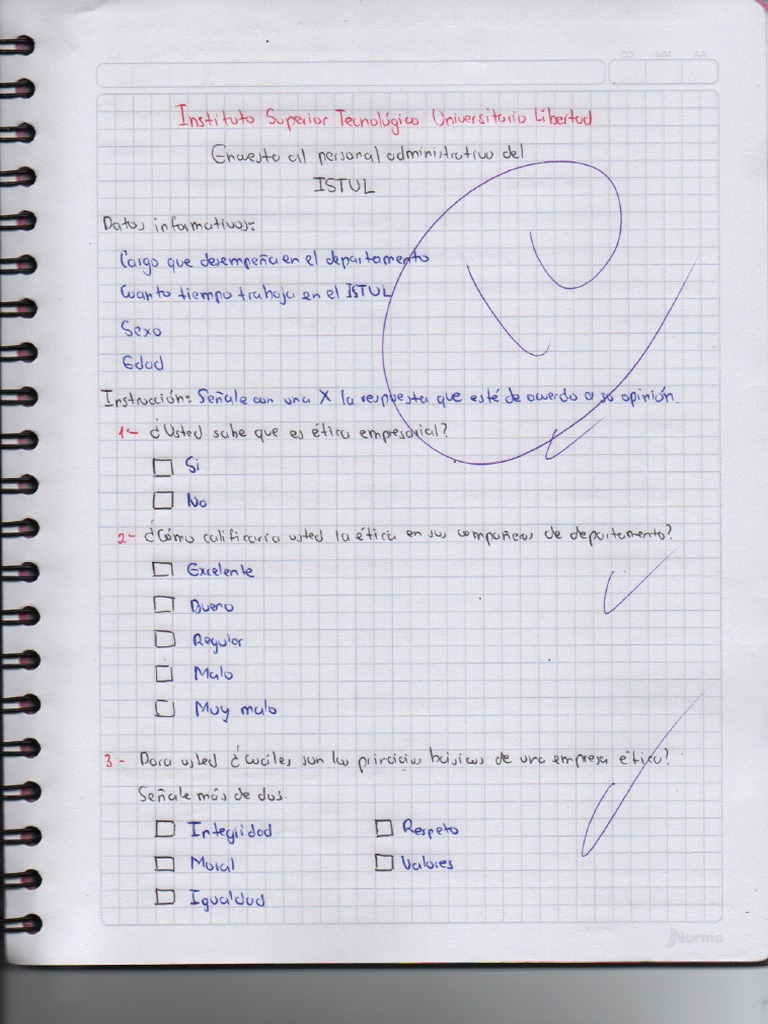 AA MM DD
Instituto Superior Tecnológico Universitario Libertad
Encuesta al personal administrativo del
ISTUL
Datos informativos:
Cargo que desempeña en el departamento
Cuanto tiempo trabaja en el ISTUL
Sexo
Edad
Instrucción: Señale con una X la respuesta que esté de acuerdo a su opinión.
1- ¿Usted sabe que es ética empresarial?
Si
No
2- ¿Cómo calificaría usted la ética en sus compañeros de departamento?
Excelente
Bueno
Regular
Malo
Muy malo
3- Para usted ¿cuáles son los principios básicos de una empresa ética?
Señale más de dos.
Integridad
Respeto
Moral
Valores
Igualdad
Norma